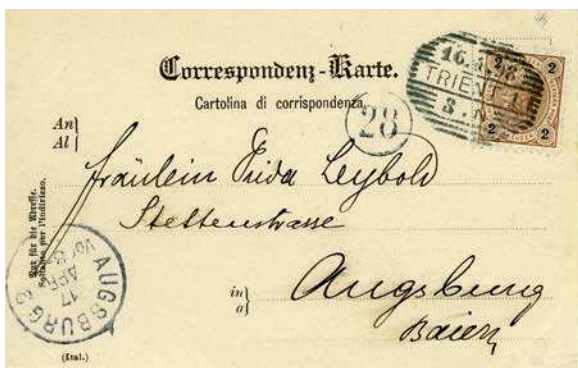 Correspondenz-Karte.
Cartolina di corrispondenza
16. 98
TRIENT 1
2
2
2
2
28
An
Al
Fräulein Frida Leybold
Stettenstrasse
in
a
Augsburg
Baiern
Nur für die Adresse.
Soltanto per l'indirizzo.
AUGSBURG
17
APR
(Ital.)